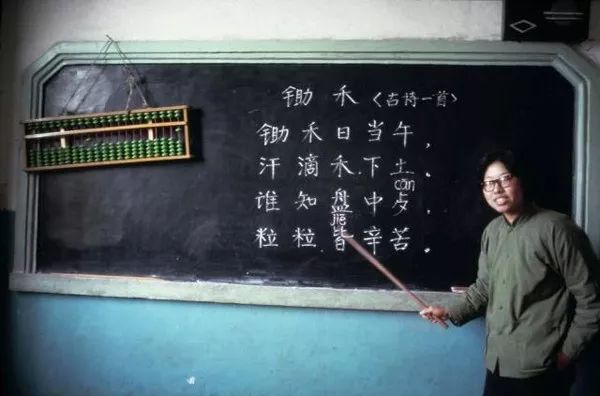 锄禾〈古诗一首〉
锄禾日当午，
汗滴禾下土
cān
谁知盘中歺．
jiē
粒粒皆辛苦。